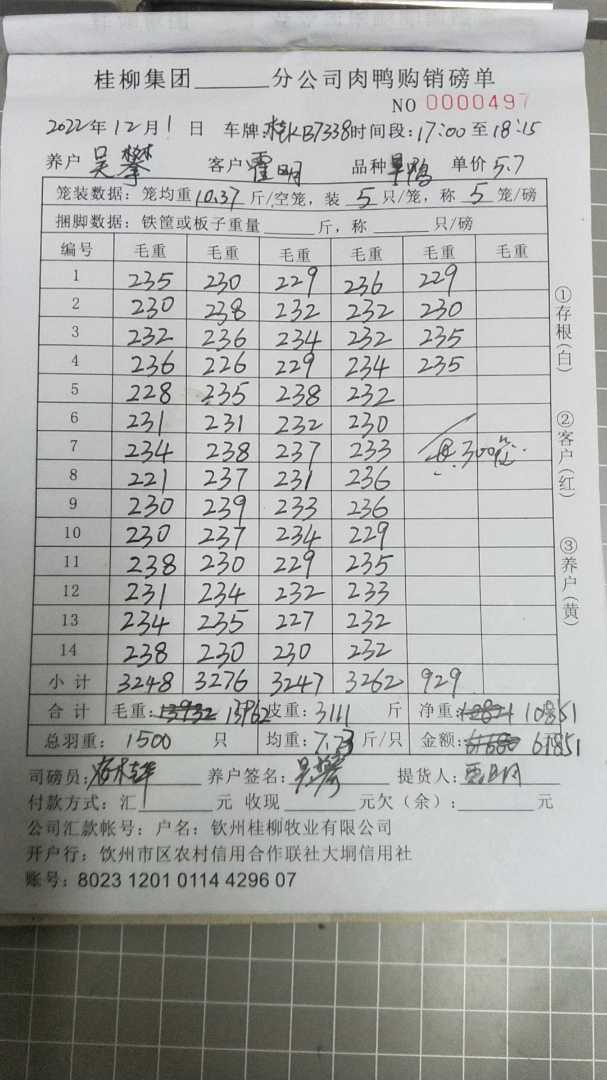 桂柳集团______分公司肉鸭购销磅单
NO 0000497
2022年12月1日 车牌:桂KB7338时间段:17:00至18:15
养户 吴攀 客户 霍明 品种 旱鸭 单价 5.7
笼装数据:笼均重10.37斤/空笼,装 5 只/笼,称 5 笼/磅
捆脚数据:铁筐或板子重量______斤,称______只/磅
编号 毛重 毛重 毛重 毛重 毛重 毛重
1 235 230 229 236 229
2 230 238 232 232 230
3 232 236 234 232 235
4 236 226 229 234 235
5 228 235 238 232
6 231 231 232 230
7 234 238 237 233 300
8 221 237 231 236
9 230 239 233 236
10 230 237 234 229
11 238 230 229 235
12 231 234 232 233
13 234 235 227 232
14 238 230 230 232
小计 3248 3276 3247 3262 929
合计 毛重:13932 13962 皮重:3111 斤 净重:10821 10851
总羽重:1500 只 均重:7.23斤/只 金额:61680 61851
司磅员: 养户签名:吴攀 提货人:霍明
付款方式:汇______元 收现______元欠(余):______元
公司汇款帐号:户名:钦州桂柳牧业有限公司
开户行:饮州市区农村信用合作联社大垌信用社
账号:8023 1201 0114 4296 07
①存根(白)
②客户(红)
③养户(黄)